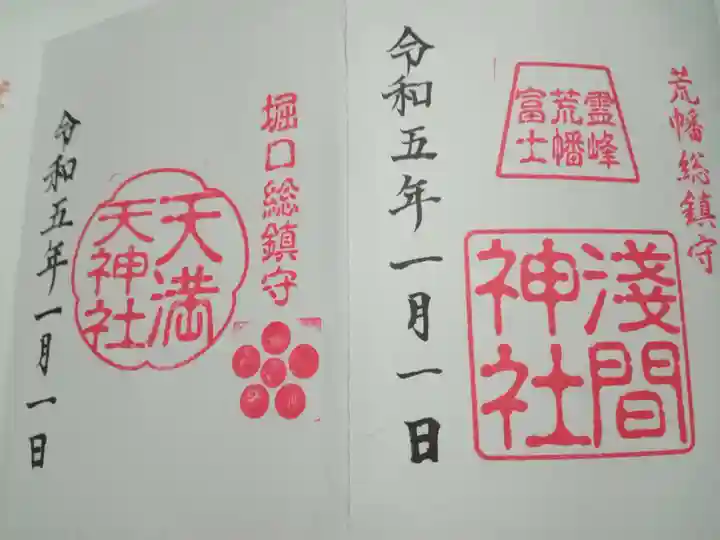 荒幡総鎮守
霊峰
荒幡
富士
淺間
神社
令和五年一月一日
堀口総鎮守
天満
天神社
令和五年一月一日